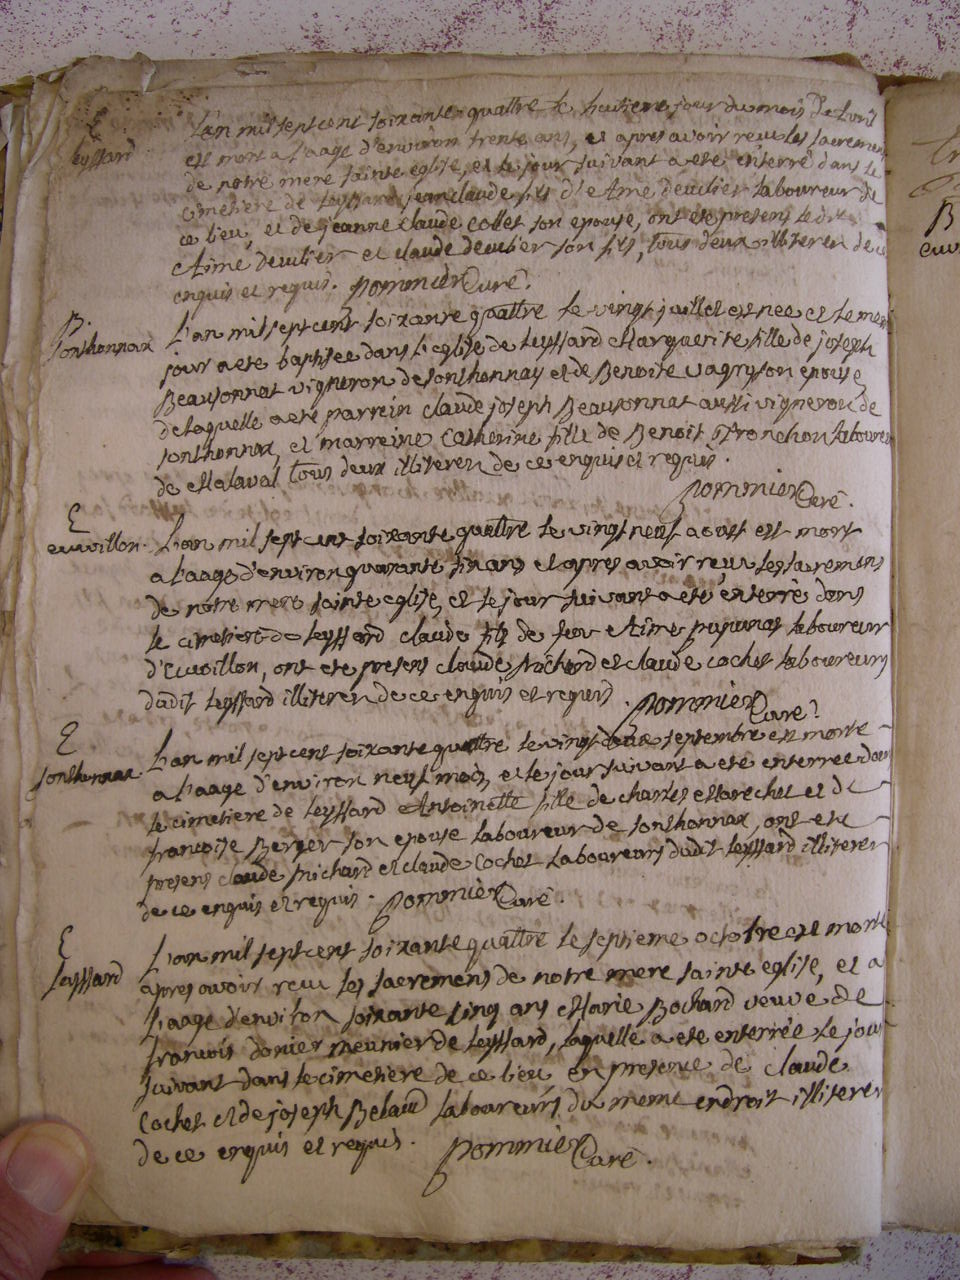 E
leyssard
L'an mil sept cent soixante quattre le huitieme jour du mois de
est mort a l'aage d'environ trente ans, et apres avoir reçu les sacremens
de notre mere sainte eglise, et le jour suivant a eté enterré dans le
cimetiere de leyssard jean claude fils d'Aime laboureur de
ce lieu, et de jeanne claude collet son epouse, ont eté presens ledit
Aime et claude son fils, tous deux illiteres de ce
enquis et requis. Pommier Curé.
B.
sonthonnax
L'an mil sept cent soixante quattre le vingt juillet est nee et le meme
jour a eté baptisee dans l'eglise de leyssard Marguerite fille de joseph
Beausonnat vigneron de sonthonnax et de Benoite vagry son epouse
de laquelle a eté parrein claude joseph Beausonnat aussi vigneron de
sonthonnax, et marreine Catherine fille de Benoit Tronchon laboureur
de Malaval tous deux illiteres de ce enquis et requis.
Pommier Curé.
E
L'an mil sept cent soixante quattre le vingt neuf aoust est mort
a l'aage d'environ quarante ans et apres avoir reçu les sacremens
de notre mere sainte eglise, et le jour suivant a eté enterré dans
le cimetiere de leyssard claude fils de feu Aime pupunat laboureur
ont eté presens claude Michard et claude cochet laboureurs
dudit leyssard illiteres de ce enquis et requis. Pommier
Curé.
E
sonthonnax
L'an mil sept cent soixante quattre le vingt deux septembre est morte
a l'aage d'environ neuf mois, et le jour suivant a eté enterree dans
le cimetiere de leyssard Antoinette fille de charles Marechet et de
francoise Berger son epouse laboureur de sonthonnax, ont eté
presens claude Michard et claude Cochet laboureurs dudit leyssard illiteres
de ce enquis et requis. Pommier Curé.
E
leyssard
L'an mil sept cent soixante quattre le septieme octobre est morte
apres avoir recu les sacremens de notre mere sainte eglise, et a
l'aage d'environ soixante cinq ans Marie Bochard veuve de
francois donier meunier de leyssard, laquelle a eté enterrée le jour
suivant dans le cimetiere de ce lieu en presence de claude
Cochet et de joseph Belaud laboureurs du meme endroit illiteres
de ce enquis et requis. Pommier Curé.